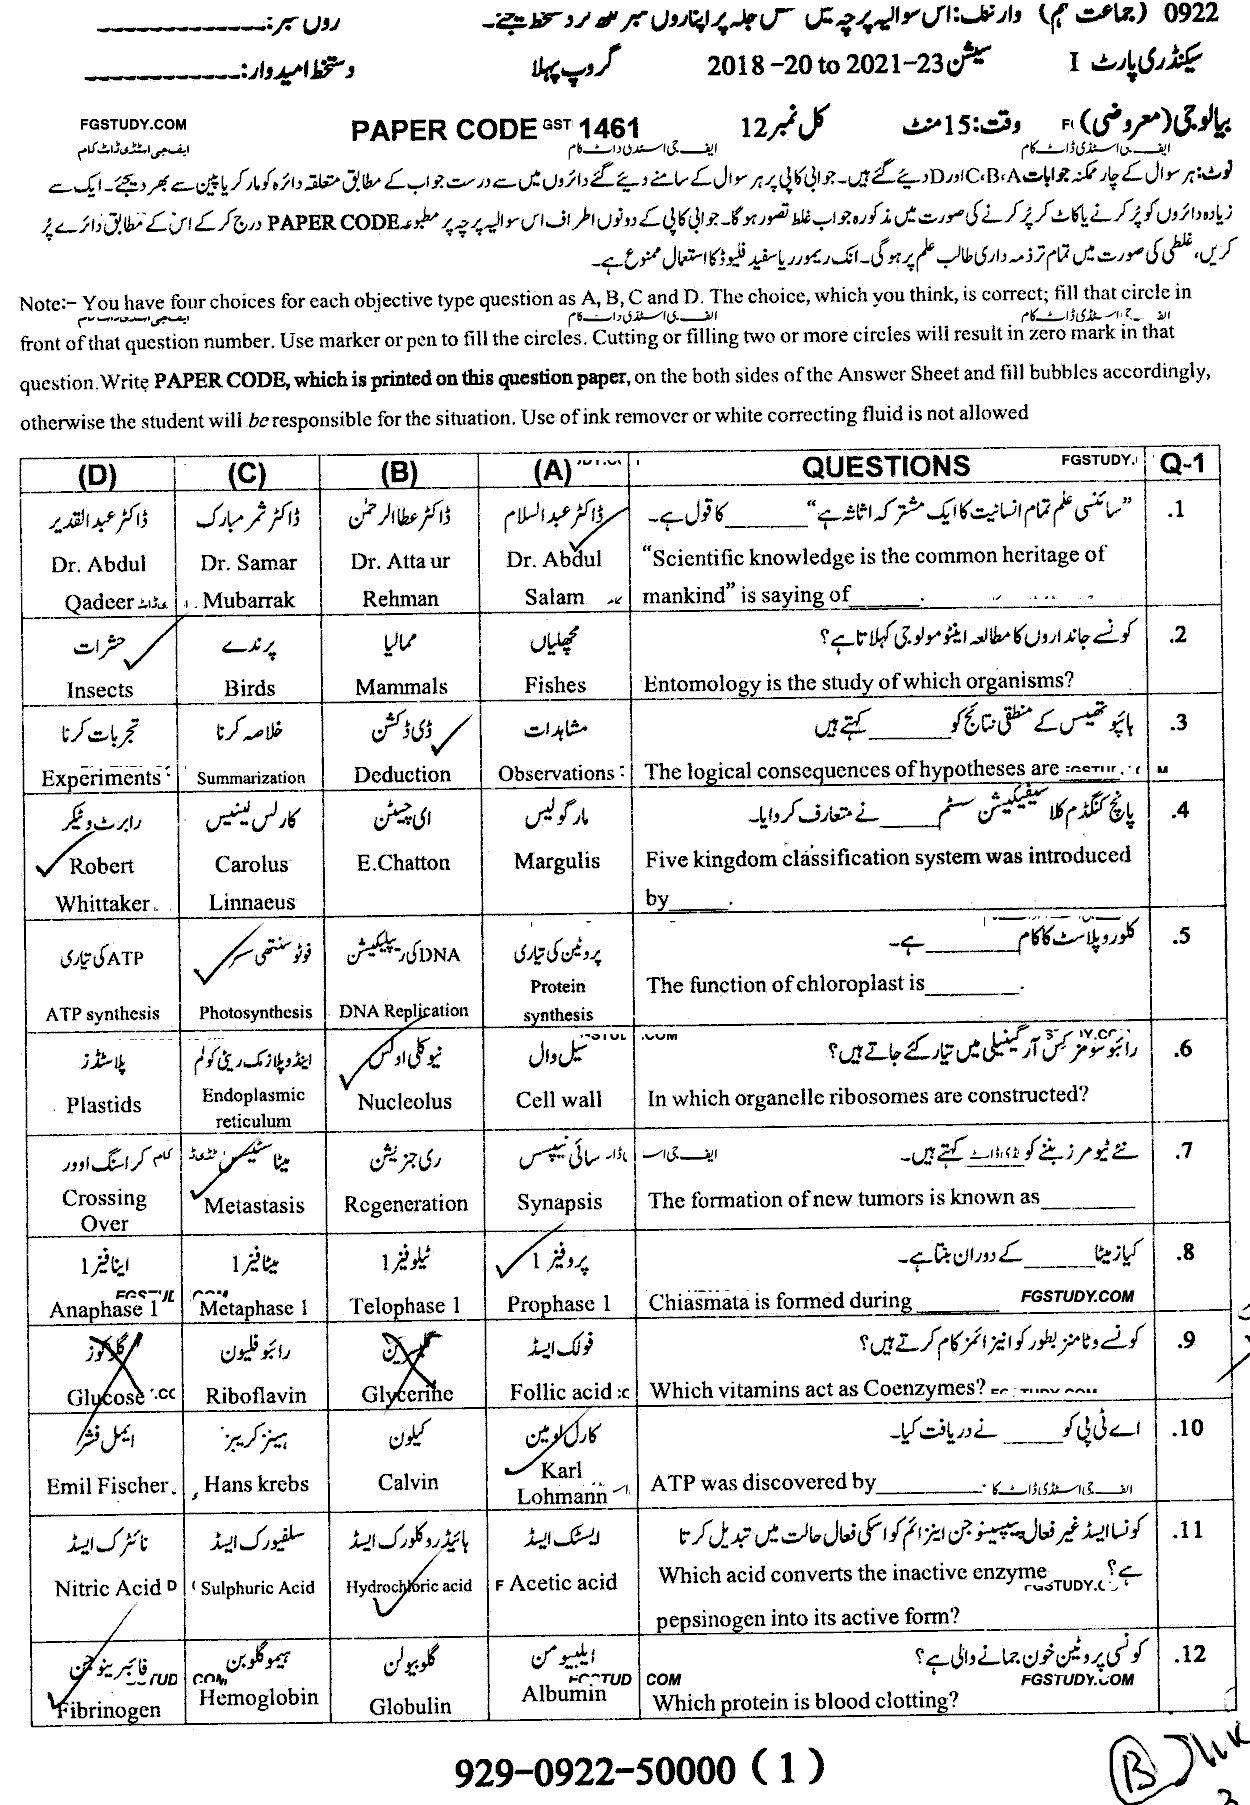 0922 (جماعت نہم) وارننگ: اس سوالیہ پرچہ میں جگہ پر اپنا رول نمبر دستخط کیجئے۔ رول نمبر:
سیکنڈری پارٹ I سیشن 2018-20 to 2021-23 گروپ پہلا دستخط امیدوار:
بیالوجی (معروضی) وقت: 15 منٹ کل نمبر 12 PAPER CODE GST 1461 FGSTUDY.COM
ایف جی اسٹڈی ڈاٹ کام
نوٹ: ہر سوال کے چار ممکنہ جوابات A،B،C اور D دیئے گئے ہیں۔ جوابی کاپی پر ہر سوال کے سامنے دیئے گئے دائروں میں سے درست جواب کے مطابق متعلقہ دائرہ کو مارکر یا پین سے بھر دیجئے۔ ایک سے
زیادہ دائروں کو پُر کرنے یا کاٹ کر پُر کرنے کی صورت میں مذکورہ جواب غلط تصور ہوگا۔ جوابی کاپی کے دونوں اطراف اس سوالیہ پرچہ پر مطبوعہ PAPER CODE درج کر کے اس کے مطابق دائرے پُر
کریں، غلطی کی صورت میں تمام تر ذمہ داری طالب علم پر ہوگی۔ انک ریموور یا سفید فلیوڈ کا استعمال ممنوع ہے۔
Note:- You have four choices for each objective type question as A, B, C and D. The choice, which you think, is correct; fill that circle in
front of that question number. Use marker or pen to fill the circles. Cutting or filling two or more circles will result in zero mark in that
question. Write PAPER CODE, which is printed on this question paper, on the both sides of the Answer Sheet and fill bubbles accordingly,
otherwise the student will be responsible for the situation. Use of ink remover or white correcting fluid is not allowed
(D) (C) (B) (A) QUESTIONS FGSTUDY. Q-1
ڈاکٹر عبدالقدیر ڈاکٹر ثمر مبارک ڈاکٹر عطاالرحمٰن ڈاکٹر عبدالسلام "سائنسی علم تمام انسانیت کا ایک مشترکہ اثاثہ ہے" ______ کا قول ہے۔ .1
Dr. Abdul Dr. Samar Dr. Atta ur Dr. Abdul "Scientific knowledge is the common heritage of
Qadeer Mubarrak Rehman Salam mankind" is saying of______.
حشرات پرندے ممالیا مچھلیاں کونسے جانداروں کا مطالعہ اینٹومولوجی کہلاتا ہے؟ .2
Insects Birds Mammals Fishes Entomology is the study of which organisms?
تجربات کرنا خلاصہ کرنا ڈی ڈکشن مشاہدات ہائپوتھیسس کے منطقی نتائج کو ______ کہتے ہیں .3
Experiments Summarization Deduction Observations The logical consequences of hypotheses are
رابرٹ وٹیکر کارلس لینیس ای چیٹن مارگولیس پانچ کنگڈم کلاسیفیکیشن سسٹم _____ نے متعارف کروایا۔ .4
Robert Carolus E.Chatton Margulis Five kingdom classification system was introduced
Whittaker Linnaeus by_____.
ATP کی تیاری فوٹوسنتھی سز DNA کی ریپلیکیشن پروٹین کی تیاری کلوروپلاسٹ کا کام ________ ہے۔ .5
ATP synthesis Photosynthesis DNA Replication Protein synthesis The function of chloroplast is________.
پلاسٹڈز اینڈوپلازمک ریٹی کولم نیوکلی اولس سیل وال رائبوسومز کس آرگنیلی میں تیار کئے جاتے ہیں؟ .6
Plastids Endoplasmic reticulum Nucleolus Cell wall In which organelle ribosomes are constructed?
کراسنگ اوور میٹاسٹیسس ری جنریشن سائی نیپسس نئے ٹیومرز بننے کو ______ کہتے ہیں۔ .7
Crossing Over Metastasis Regeneration Synapsis The formation of new tumors is known as________
اینافیز 1 میٹافیز 1 ٹیلوفیز 1 پروفیز 1 کیازمیٹا _____ کے دوران بنتا ہے۔ .8
Anaphase 1 Metaphase 1 Telophase 1 Prophase 1 Chiasmata is formed during _______ FGSTUDY.COM
گلوکوز رائبوفلیون گلیسرین فولک ایسڈ کونسے وٹامنز بطور کو انیزائمز کام کرتے ہیں؟ .9
Glucose Riboflavin Glycerine Follic acid Which vitamins act as Coenzymes?
ایمل فشر ہینز کریبز کیلون کارل لوہمین اے ٹی پی کو _____ نے دریافت کیا۔ .10
Emil Fischer Hans krebs Calvin Karl Lohmann ATP was discovered by_________.
نائٹرک ایسڈ سلفیورک ایسڈ ہائیڈروکلورک ایسڈ ایسٹک ایسڈ کونسا ایسڈ غیر فعال پیپسینوجن اینزائم کو اسکی فعال حالت میں تبدیل کرتا ہے؟ .11
Nitric Acid Sulphuric Acid Hydrochloric acid Acetic acid Which acid converts the inactive enzyme
pepsinogen into its active form?
فائبرینوجن ہیموگلوبن گلوبیولن ایلبیومن کونسی پروٹین خون جمانے والی ہے؟ .12
Fibrinogen Hemoglobin Globulin Albumin Which protein is blood clotting? FGSTUDY.COM
929-0922-50000 ( 1 )
B